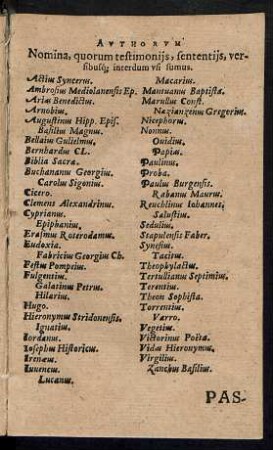 AVTHORVM
Nomina, quorum testimonijs, sententijs, ver-
sibusq; interdum vsi sumus.
Actius Syncerus.
Ambrosius Mediolanensis Ep.
Arias Benedictus.
Arnobius.
Augustinus Hipp. Epis.
Basilius Magnus.
Bellaius Gulielmus.
Bernhardus CL.
Biblia Sacra.
Buchananus Georgius.
Carolus Sigonius.
Cicero.
Clemens Alexandrinus.
Cyprianus.
Epiphanius.
Erasmus Roterodamus.
Eudoxia.
Fabricius Georgius Ch.
Festus Pompeius.
Fulgentius.
Galatinus Petrus.
Hilarius.
Hugo.
Hieronymus Stridonensis.
Ignatius.
Iordanus.
Iosephus Historicus.
Irenæus.
Iuuencus.
Lucanus.
Macarius.
Mantuanus Baptista.
Marullus Const.
Nazianzenus Gregorius.
Nicephorus.
Nonnus.
Ouidius.
Papias.
Paulinus.
Proba.
Paulus Burgensis.
Rabanus Maurus.
Reuchlinus Iohannes.
Salustius.
Sedulius.
Stapulensis Faber.
Synesius.
Tacitus.
Theophylactus.
Tertullianus Septimius.
Terentius.
Theon Sophista.
Torrentius.
Varro.
Vegetius.
Victorinus Poëta.
Vidas Hieronymus.
Virgilius.
Zanchus Basilius.
PAS-